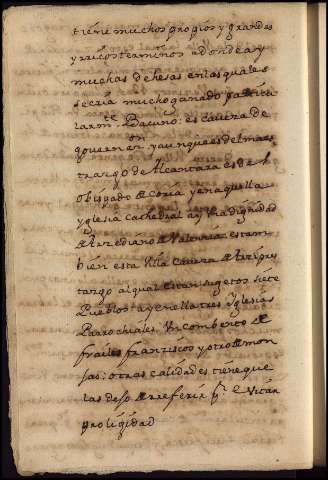 tiene muchos propios y grandes
y ricos terminos adonde ay
muchas dehesas en las quales
se cria mucho ganado particu
larmte Bacuno: es caveza de
governon y aunque es del maes
trazgo de Alcantara es de el
obispado de Coria y en aquella
yglesia cathedral ay una dignidad
de Arzediano de Valencia. es tam
bien esta villa caveza de Arzipres
tazgo al qual estan sugetos siete
Pueblos: ay en ella tres yglesias
Parrochiales, un combento de
frailes franziscos y otro de mon
jas: otras calidades tiene que
las dejo de referir pr evitar
proligidad